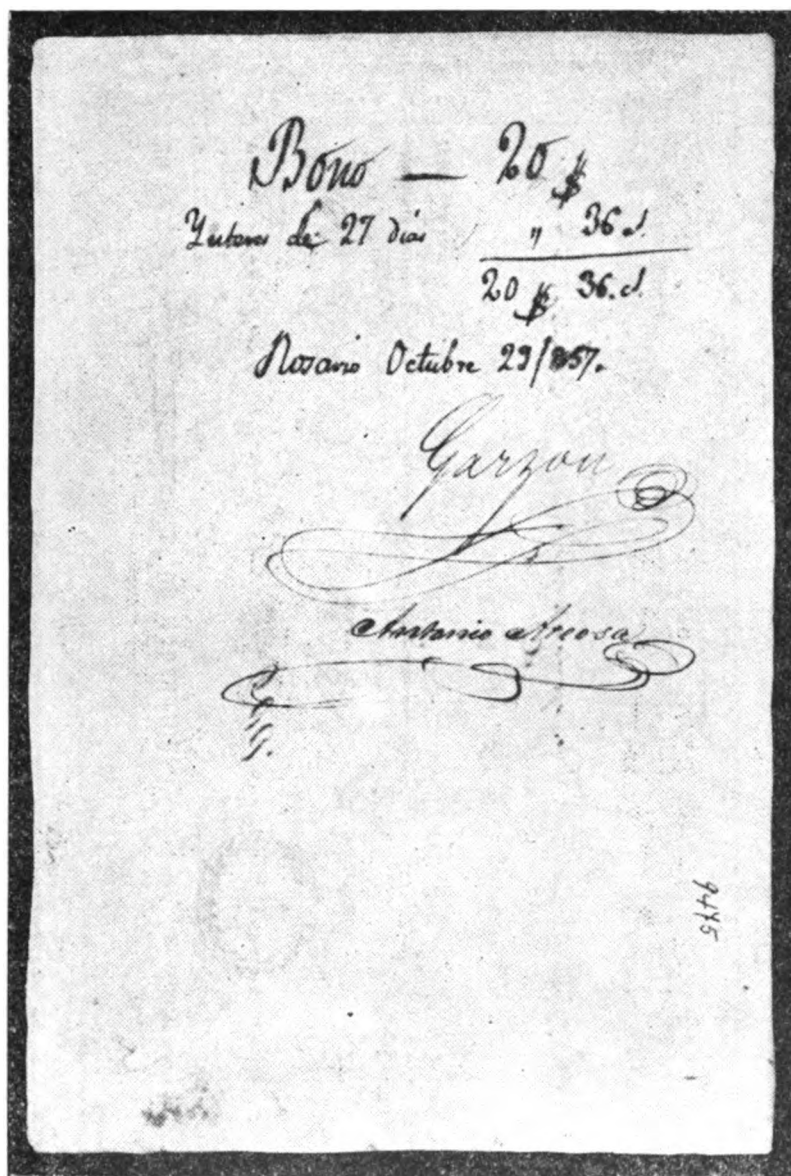 Bono — 20 $
Interes de 27 dias " 36 cs.
20 $ 36. cs.
Rosario Octubre 29/857.
Garzon
Antonio Arcosa
G.
9475